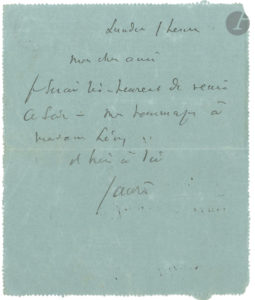 Lundi 1 heure
mon cher ami
je serai très heureux de venir
ce soir – mes hommages à
madame Lévy
et bien à toi
Jaurès